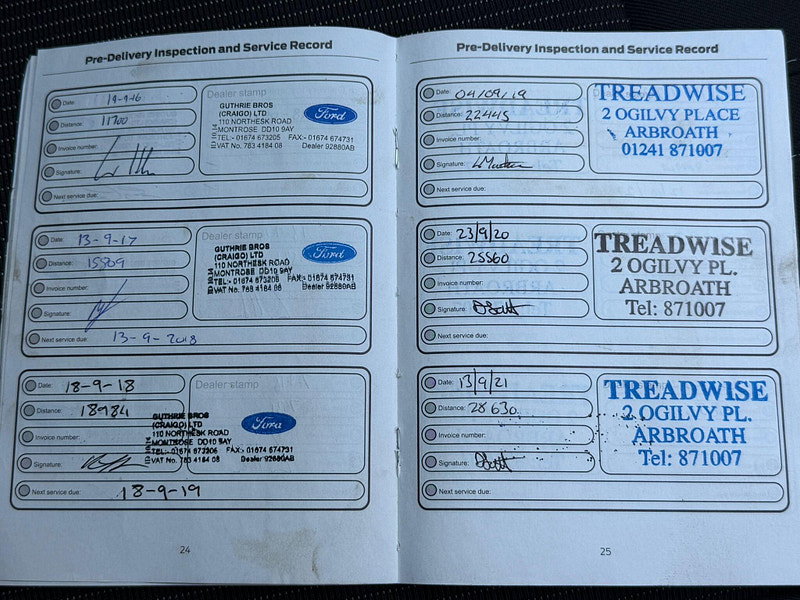 Pre-Delivery Inspection and Service Record
Date: 19-9-16
Distance: 11700
Invoice number:
Signature:
Next service due:
Dealer stamp
GUTHRIE BROS
(CRAIGO) LTD
110 NORTHESK ROAD
MONTROSE DD10 9AY
TEL:- 01674 673205 FAX:- 01674 674731
VAT No. 783 4184 08 Dealer 92880AB
Ford
Date: 13-9-17
Distance: 15809
Invoice number:
Signature:
Next service due: 13-9-2018
Dealer stamp
GUTHRIE BROS
(CRAIGO) LTD
110 NORTHESK ROAD
MONTROSE DD10 9AY
TEL:- 01674 673205 FAX:- 01674 674731
VAT No. 783 4184 08 Dealer 92880AB
Ford
Date: 18-9-18
Distance: 18984
Invoice number:
Signature:
Next service due: 18-9-19
Dealer stamp
GUTHRIE BROS
(CRAIGO) LTD
110 NORTHESK ROAD
MONTROSE DD10 9AY
TEL:- 01674 673205 FAX:- 01674 674731
VAT No. 783 4184 08 Dealer 92880AB
Ford
24
Pre-Delivery Inspection and Service Record
Date: 04/09/19
Distance: 22445
Invoice number:
Signature:
Next service due:
TREADWISE
2 OGILVY PLACE
ARBROATH
01241 871007
Date: 23/9/20
Distance: 25560
Invoice number:
Signature:
Next service due:
TREADWISE
2 OGILVY PL.
ARBROATH
Tel: 871007
Date: 13/9/21
Distance: 28630
Invoice number:
Signature:
Next service due:
TREADWISE
2 OGILVY PL.
ARBROATH
Tel: 871007
25